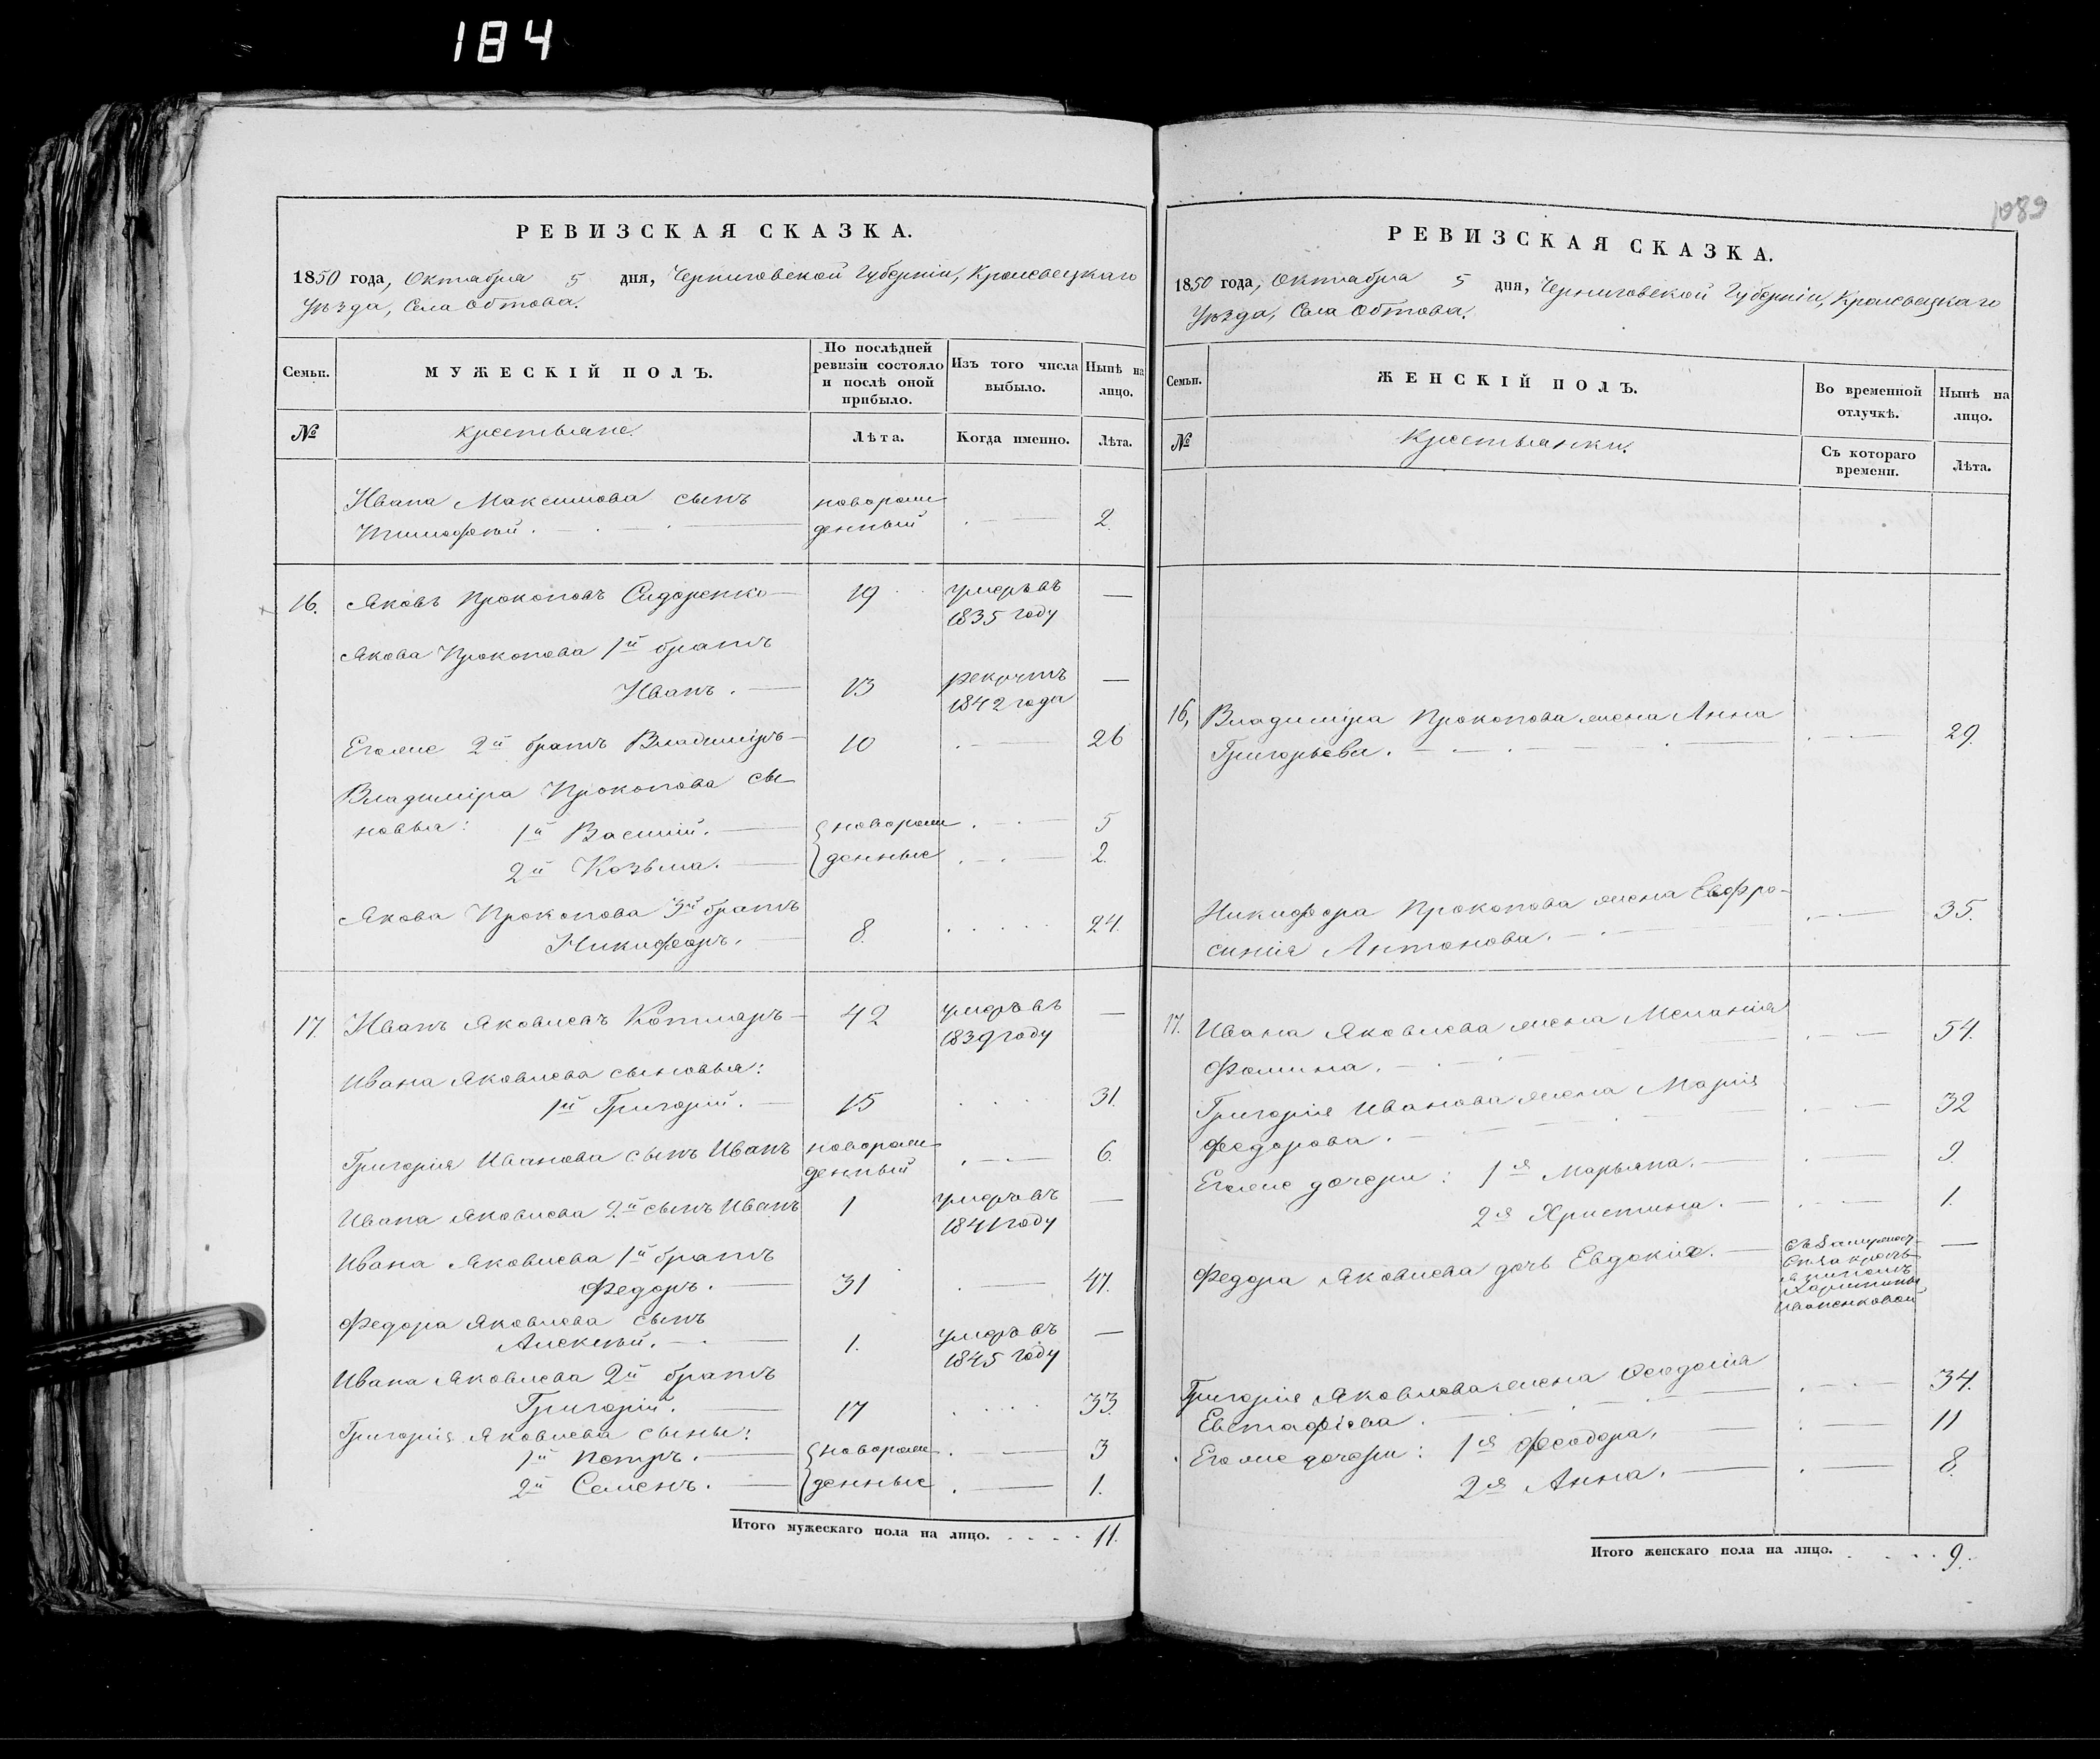 184
1089
РЕВИЗСКАЯ СКАЗКА.
1850 года, Октября 5 дня, Черниговской Губерніи, Кролевецкаго
Уѣзда, Села Обтова.
Семьи. МУЖЕСКІЙ ПОЛЪ. По послѣдней ревизіи состояло и послѣ оной прибыло. Изъ того числа выбыло. Нынѣ на лицо.
№ Крестьяне. Лѣта. Когда именно. Лѣта.
Ивана Максимова сынъ новорож
Тимофѣй. денный 2
16. Яковъ Прокоповъ Сидоренко 19 умеръ въ —
1835 году
Якова Прокопова 1й братъ
Иванъ. 13 рекрутъ —
1842 года
Егоже 2й братъ Владиміръ 10 26
Владиміра Прокопова сы
новья: 1й Василій. новорож 5
2й Козьма. денные 2.
Якова Прокопова 3й братъ
Никифоръ. 8. 24.
17 Иванъ Яковлевъ Котляръ 42 умеръ въ —
1839 году
Ивана Яковлева сыновья:
1й Григорій. 15 31.
Григорія Иванова сынъ Иванъ новорож 6.
денный
Ивана Яковлева 2й сынъ Иванъ 1 умеръ въ —
1841 году
Ивана Яковлева 1й братъ
Федоръ. 31 47.
Федора Яковлева сынъ
Алексѣй. 1. умеръ въ —
1845 году
Ивана Яковлева 2й братъ
Григорій. 17 33.
Григорія Яковлева сыны:
1й Петръ. новорож 3
2й Семенъ. денные 1.
Итого мужескаго пола на лицо. 11.
РЕВИЗСКАЯ СКАЗКА.
1850 года, Октября 5 дня, Черниговской Губерніи, Кролевецкаго
Уѣзда, Села Обтова.
Семьи. ЖЕНСКІЙ ПОЛЪ. Во временной отлучкѣ. Нынѣ на лицо.
№ Крестьянки. Съ котораго времени. Лѣта.
16, Владиміра Прокопова жена Анна
Григорьева. 29.
Никифора Прокопова жена Евфро-
синія Антонова. 35.
17. Ивана Яковлева жена Меланія
Фомина. 54.
Григорія Иванова жена Марія
Федорова. 32
Егоже дочери: 1я Марьяна. 9
2я Христина. 1.
Федора Яковлева дочь Евдокія. —
Григорія Яковлева жена Феодосія
Евстафіева. 34.
Егоже дочери: 1я Феодора, 11
2я Анна. 8.
Итого женскаго пола на лицо. 9.